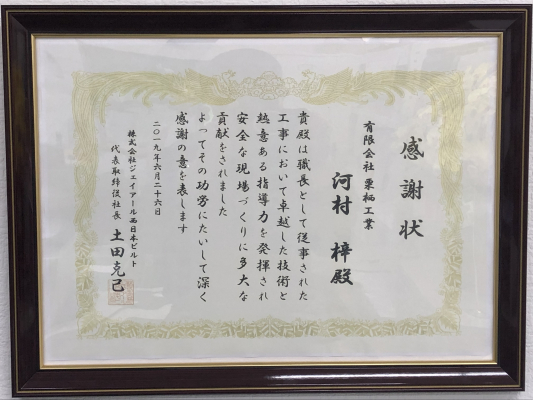 感謝状
有限会社 栗栖工業
河村 梓殿
貴殿は職長として従事された
工事において卓越した技術と
熱意ある指導力を発揮され
安全な現場づくりに多大な
貢献をされました
よってその功労にたいして深く
感謝の意を表します
二〇一九年六月二十六日
株式会社ジェイアール西日本ビルト
代表取締役社長 土田克己